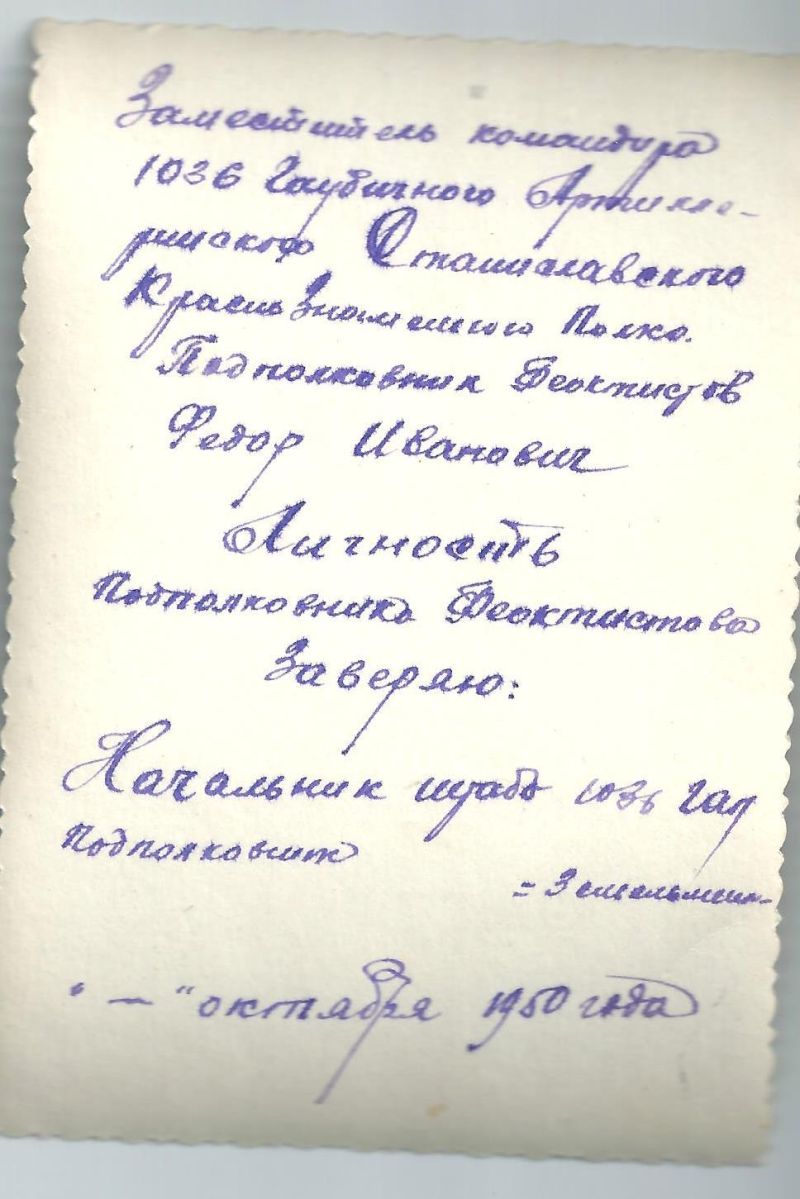 Заместитель командира
1036 Гаубичного Артилле-
рийского Станиславского
КрасноЗнаменного Полка.
Подполковник Феоктистов
Федор Иванович
Личность
Подполковника Феоктистова
Заверяю:
Начальник штаба 1036 Гап
Подполковник
" — " октября 1950 года